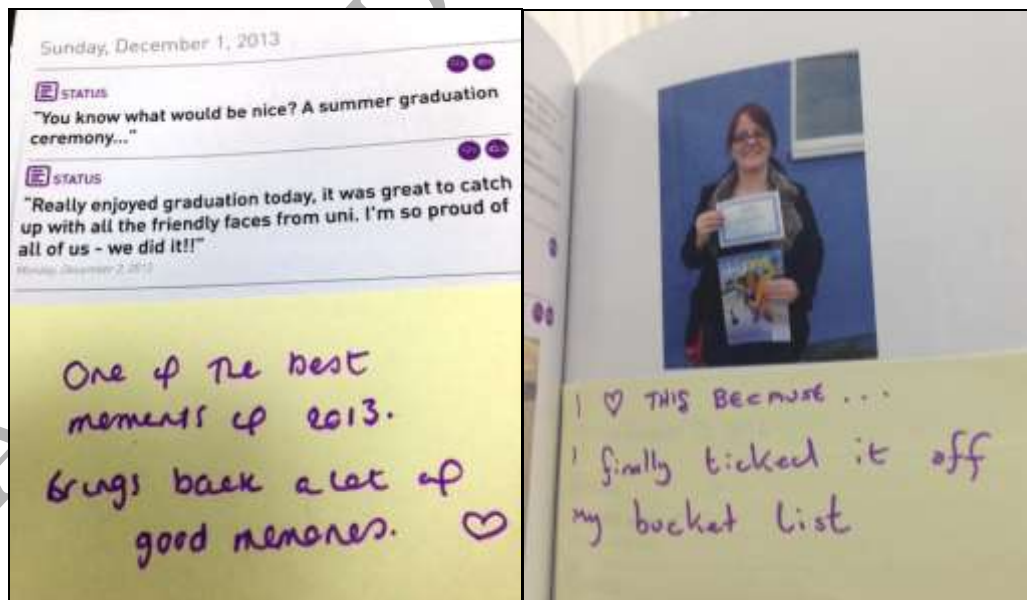 Sunday, December 1, 2013
STATUS
"You know what would be nice? A summer graduation
ceremony..."
STATUS
"Really enjoyed graduation today, it was great to catch
up with all the friendly faces from uni. I'm so proud of
all of us - we did it!!"
Monday, December 2, 2013
One of the best
moments of 2013.
Brings back a lot of
good memories. ♡
I ♡ THIS BECAUSE...
I finally ticked it off
my bucket list